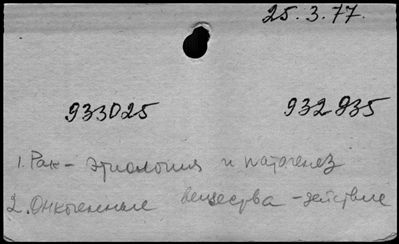 25.3.77.
933025 932835
1. Рак - этиология и патогенез
2. Онкогенные вещества - действие